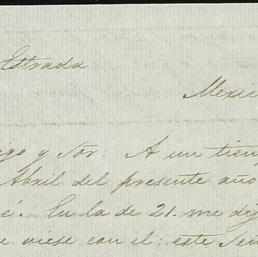 Estrada
Mexic
go y Sor: A un tien
Abril del presente año
é. En la de 21. me di
e viese con el: este Señ